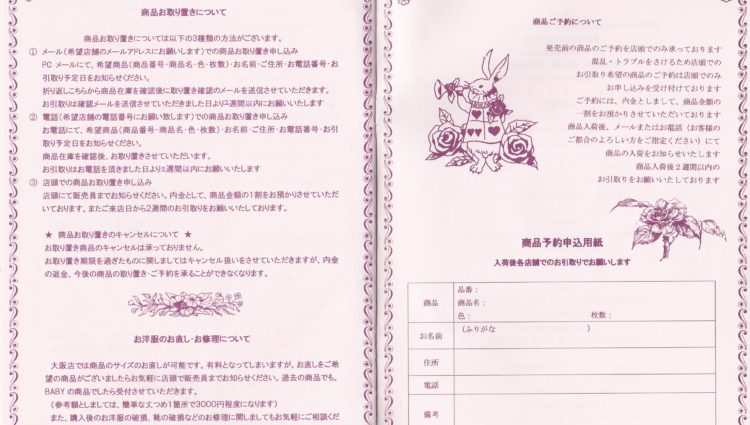 商品お取り置きについて
商品お取り置きについては以下の3種類の方法がございます。
① メール(希望店舗のメールアドレスにお願いします)での商品お取り置き申し込み
PCメールにて、希望商品(商品番号・商品名・色・枚数)・お名前・ご住所・お電話番号・お
引取り予定日をお知らせください。
折り返しこちらから商品在庫を確認後に取り置き確認のメールを送信させていただきます。
お引取りは確認メールを送信させていただきました日より2週間以内にお願いいたします
② 電話(希望店舗の電話番号にお願い致します)での商品お取り置き申し込み
お電話にて、希望商品(商品番号・商品名・色・枚数)・お名前・ご住所・お電話番号・お引
取り予定日をお知らせください。
商品在庫を確認後、お取り置きさせていただいます。
お引取りはお電話を頂きました日より2週間以内にお願いいたします
③ 店頭での商品お取り置き申し込み
店頭にて販売員までお知らせください。内金として、商品金額の1割をお預かりさせていただ
いております。またご来店日から2週間のお引取りをお願いいたしております。
★ 商品お取り置きのキャンセルについて ★
お取り置き商品のキャンセルは承っておりません。
お取り置き期限を過ぎたものに関しましてはキャンセル扱いをさせていただきますが、内金
の返金、今後の商品の取り置き・ご予約を承ることができなくなります。
お洋服のお直し・お修理について
大阪店では商品のサイズのお直しが可能です。有料となってしまいますが、お直しをご希
望の商品がございましたらお気軽に店頭で販売員までお知らせください。過去の商品でも、
BABYの商品でしたら受付させていただきます。
(参考額としましては、簡単な丈つめ1箇所で3000円程度になります)
また、購入後のお洋服の破損、靴の破損などのお修理に関しましてもお気軽にご相談くだ
商品ご予約について
発売前の商品のご予約を店頭でのみ承っております
混乱・トラブルをさけるため店頭での
お引取り希望の商品のご予約は店頭でのみ
お申し込みを受け付けております
ご予約には、内金としまして、商品金額の
一割をお預かりさせていただいております
商品入荷後、メールまたはお電話(お客様の
ご都合のよろしい方をご指定ください)にて
商品の入荷をお知らせいたします
商品入荷後2週間以内の
お引取りをお願いいたしております
商品予約申込用紙
入荷後各店舗でのお引取りでお願いします
商品
品番:
商品名:
色: 枚数:
お名前 (ふりがな )
住所
電話
備考